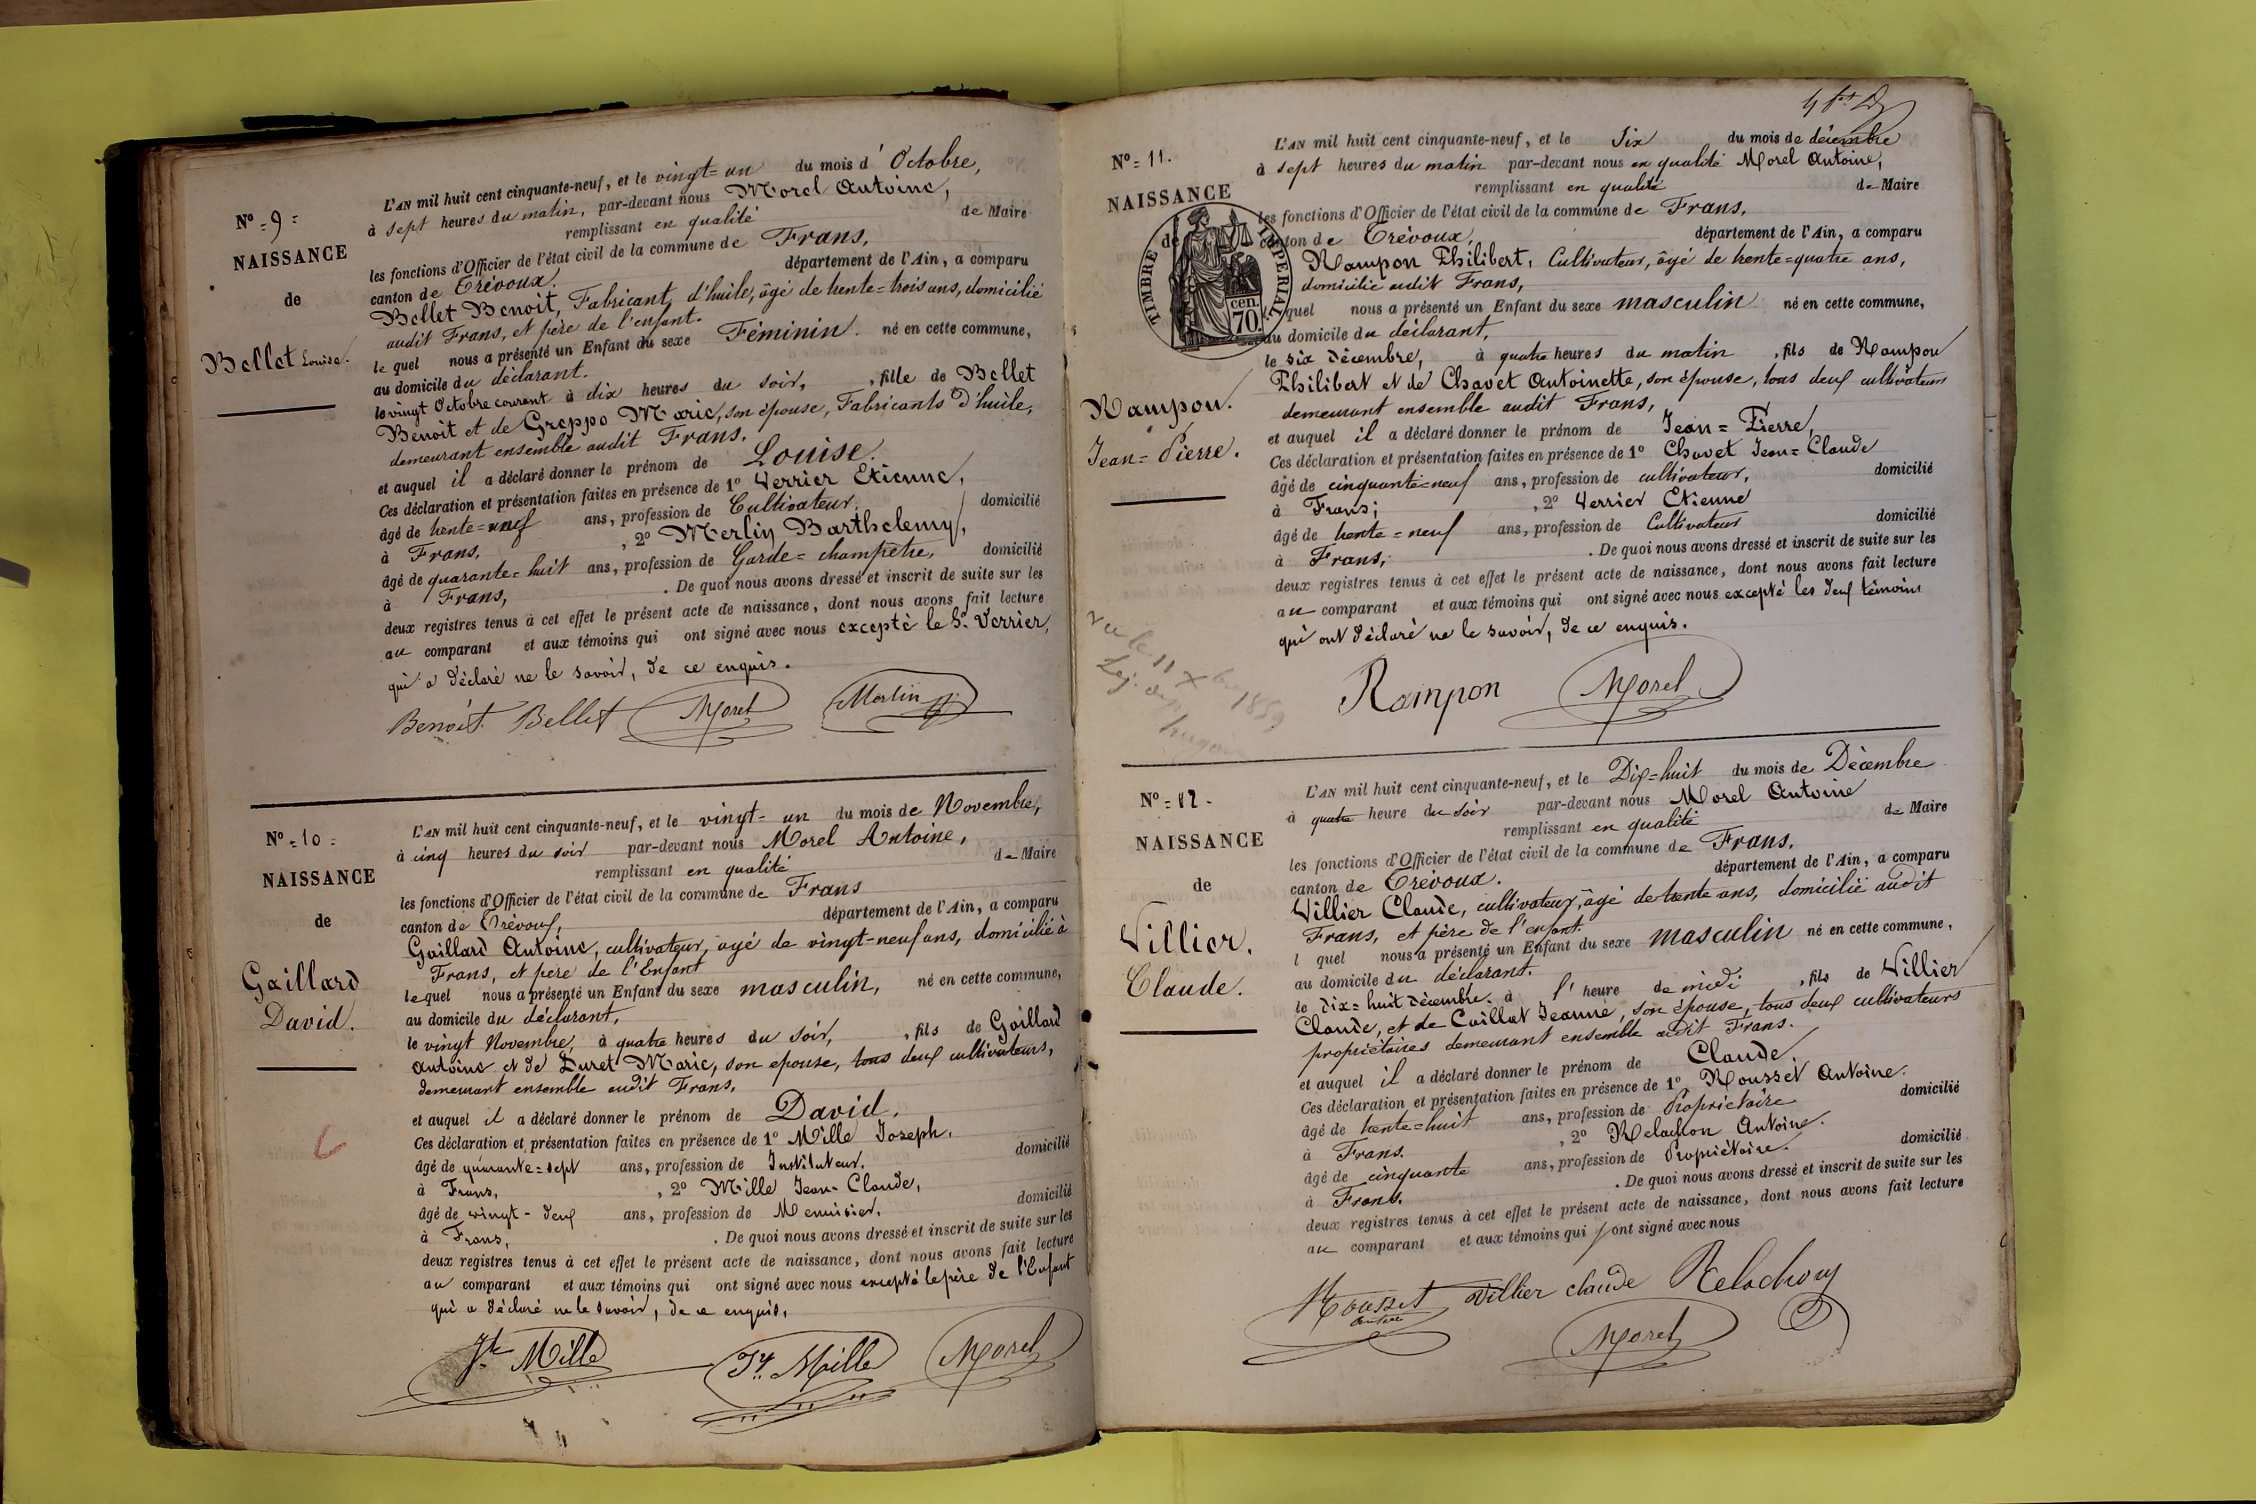 N°=9=
NAISSANCE
de
Bellet Louise.
L'AN mil huit cent cinquante-neuf, et le vingt=un du mois d'Octobre,
à sept heures du matin, par-devant nous Morel Antoine,
remplissant en qualité de Maire
les fonctions d'Officier de l'état civil de la commune de Frans,
canton de Trévoux. département de l'Ain, a comparu
Bellet Benoit, Fabricant d'huile, âgé de trente=trois ans, domicilié
audit Frans, et père de l'enfant.
le quel nous a présenté un Enfant du sexe Féminin. né en cette commune,
au domicile du déclarant.
le vingt Octobre courant à dix heures du soir, , fille de Bellet
Benoit et de Greppo Marie, son épouse, Fabricants d'huile,
demeurant ensemble audit Frans.
et auquel il a déclaré donner le prénom de Louise.
Ces déclaration et présentation faites en présence de 1° Verrier Etienne,
âgé de trente=neuf ans, profession de Cultivateur, domicilié
à Frans, , 2° Merlin Barthelemy,
âgé de quarante=huit ans, profession de Garde=champêtre, domicilié
à Frans, . De quoi nous avons dressé et inscrit de suite sur les
deux registres tenus à cet effet le présent acte de naissance, dont nous avons fait lecture
au comparant et aux témoins qui ont signé avec nous excepté le Sr. Verrier,
qui a déclaré ne le savoir, de ce enquis.
Benoit Bellet Morel Merlin
N°=10=
NAISSANCE
de
Gaillard
David.
L'AN mil huit cent cinquante-neuf, et le vingt=un du mois de Novembre,
à cinq heures du soir par-devant nous Morel Antoine,
remplissant en qualité de Maire
les fonctions d'Officier de l'état civil de la commune de Frans
canton de Trévoux, département de l'Ain, a comparu
Gaillard Antoine, cultivateur, âgé de vingt=neuf ans, domicilié à
Frans, et père de l'Enfant
lequel nous a présenté un Enfant du sexe masculin, né en cette commune,
au domicile du déclarant,
le vingt Novembre, à quatre heures du soir, , fils de Gaillard
Antoine et de Duret Marie, son épouse, tous deux cultivateurs,
demeurant ensemble audit Frans,
et auquel il a déclaré donner le prénom de David.
Ces déclaration et présentation faites en présence de 1° Mille Joseph,
âgé de quarante=sept ans, profession de Instituteur. domicilié
à Frans, , 2° Mille Jean-Claude,
âgé de vingt-deux ans, profession de Menuisier, domicilié
à Frans, . De quoi nous avons dressé et inscrit de suite sur les
deux registres tenus à cet effet le présent acte de naissance, dont nous avons fait lecture
au comparant et aux témoins qui ont signé avec nous excepté le père de l'Enfant
qui a déclaré ne le savoir, de ce enquis,
Jh Mille Mille Morel
6
N°=11.
NAISSANCE
de
Rampon.
Jean=Pierre.
TIMBRE IMPERIAL
cen.
70
L'AN mil huit cent cinquante-neuf, et le Six du mois de décembre
à sept heures du matin par-devant nous en qualité Morel Antoine,
remplissant en qualité de Maire
les fonctions d'Officier de l'état civil de la commune de Frans,
canton de Trévoux, département de l'Ain, a comparu
Rampon Philibert, Cultivateur, âgé de trente=quatre ans,
domicilié audit Frans,
quel nous a présenté un Enfant du sexe masculin né en cette commune,
au domicile du déclarant,
le six Décembre, à quatre heures du matin , fils de Rampon
Philibert et de Chavet Antoinette, son épouse, tous deux cultivateurs
demeurant ensemble audit Frans,
et auquel il a déclaré donner le prénom de Jean=Pierre,
Ces déclaration et présentation faites en présence de 1° Chavet Jean=Claude
âgé de cinquante=neuf ans, profession de cultivateur, domicilié
à Frans; , 2° Verrier Etienne
âgé de trente=neuf ans, profession de Cultivateur domicilié
à Frans, . De quoi nous avons dressé et inscrit de suite sur les
deux registres tenus à cet effet le présent acte de naissance, dont nous avons fait lecture
au comparant et aux témoins qui ont signé avec nous excepté les deux témoins
qui ont déclaré ne le savoir, de ce enquis.
Rampon Morel
Vu le 11 Xbre 1859
N°=12-
NAISSANCE
de
Villier.
Claude.
L'AN mil huit cent cinquante-neuf, et le Dix=huit du mois de Décembre
à quatre heure du soir par-devant nous Morel Antoine
remplissant en qualité de Maire
les fonctions d'Officier de l'état civil de la commune de Frans,
canton de Trévoux. département de l'Ain, a comparu
Villier Claude, cultivateur, âgé de trente ans, domicilié audit
Frans, et père de l'enfant.
l quel nous a présenté un Enfant du sexe masculin né en cette commune,
au domicile du déclarant.
le dix=huit décembre. à l' heure de midi , fils de Villier
Claude, et de Caillat Jeanne, son épouse, tous deux cultivateurs
propriétaires demeurant ensemble audit Frans.
et auquel il a déclaré donner le prénom de Claude.
Ces déclaration et présentation faites en présence de 1° Rousset Antoine.
âgé de trente=huit ans, profession de Propriétaire domicilié
à Frans. , 2° Relachon Antoine.
âgé de cinquante ans, profession de Propriétaire. domicilié
à Frans. . De quoi nous avons dressé et inscrit de suite sur les
deux registres tenus à cet effet le présent acte de naissance, dont nous avons fait lecture
au comparant et aux témoins qui ont signé avec nous
Rousset Villier claude Relachon
Morel